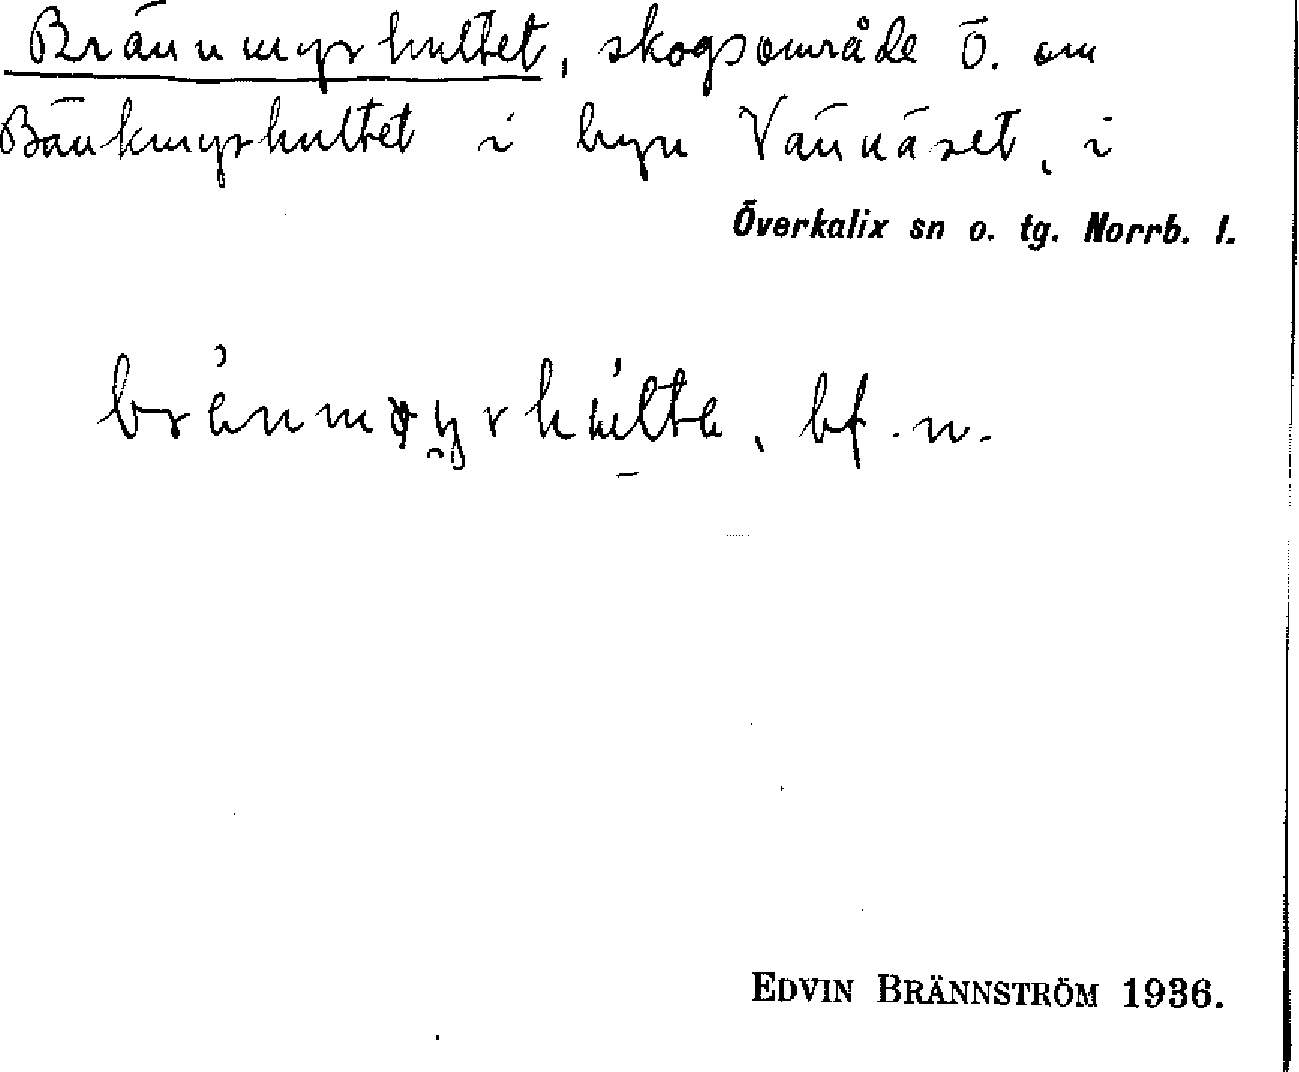 Brännmyrhultet, skogsområde ö. om
Bänkmyrhultet i byn Vännäset, i
Överkalix sn o. tg. Norrb. l.
bf. n.
EDVIN BRÄNNSTRÖM 1936.